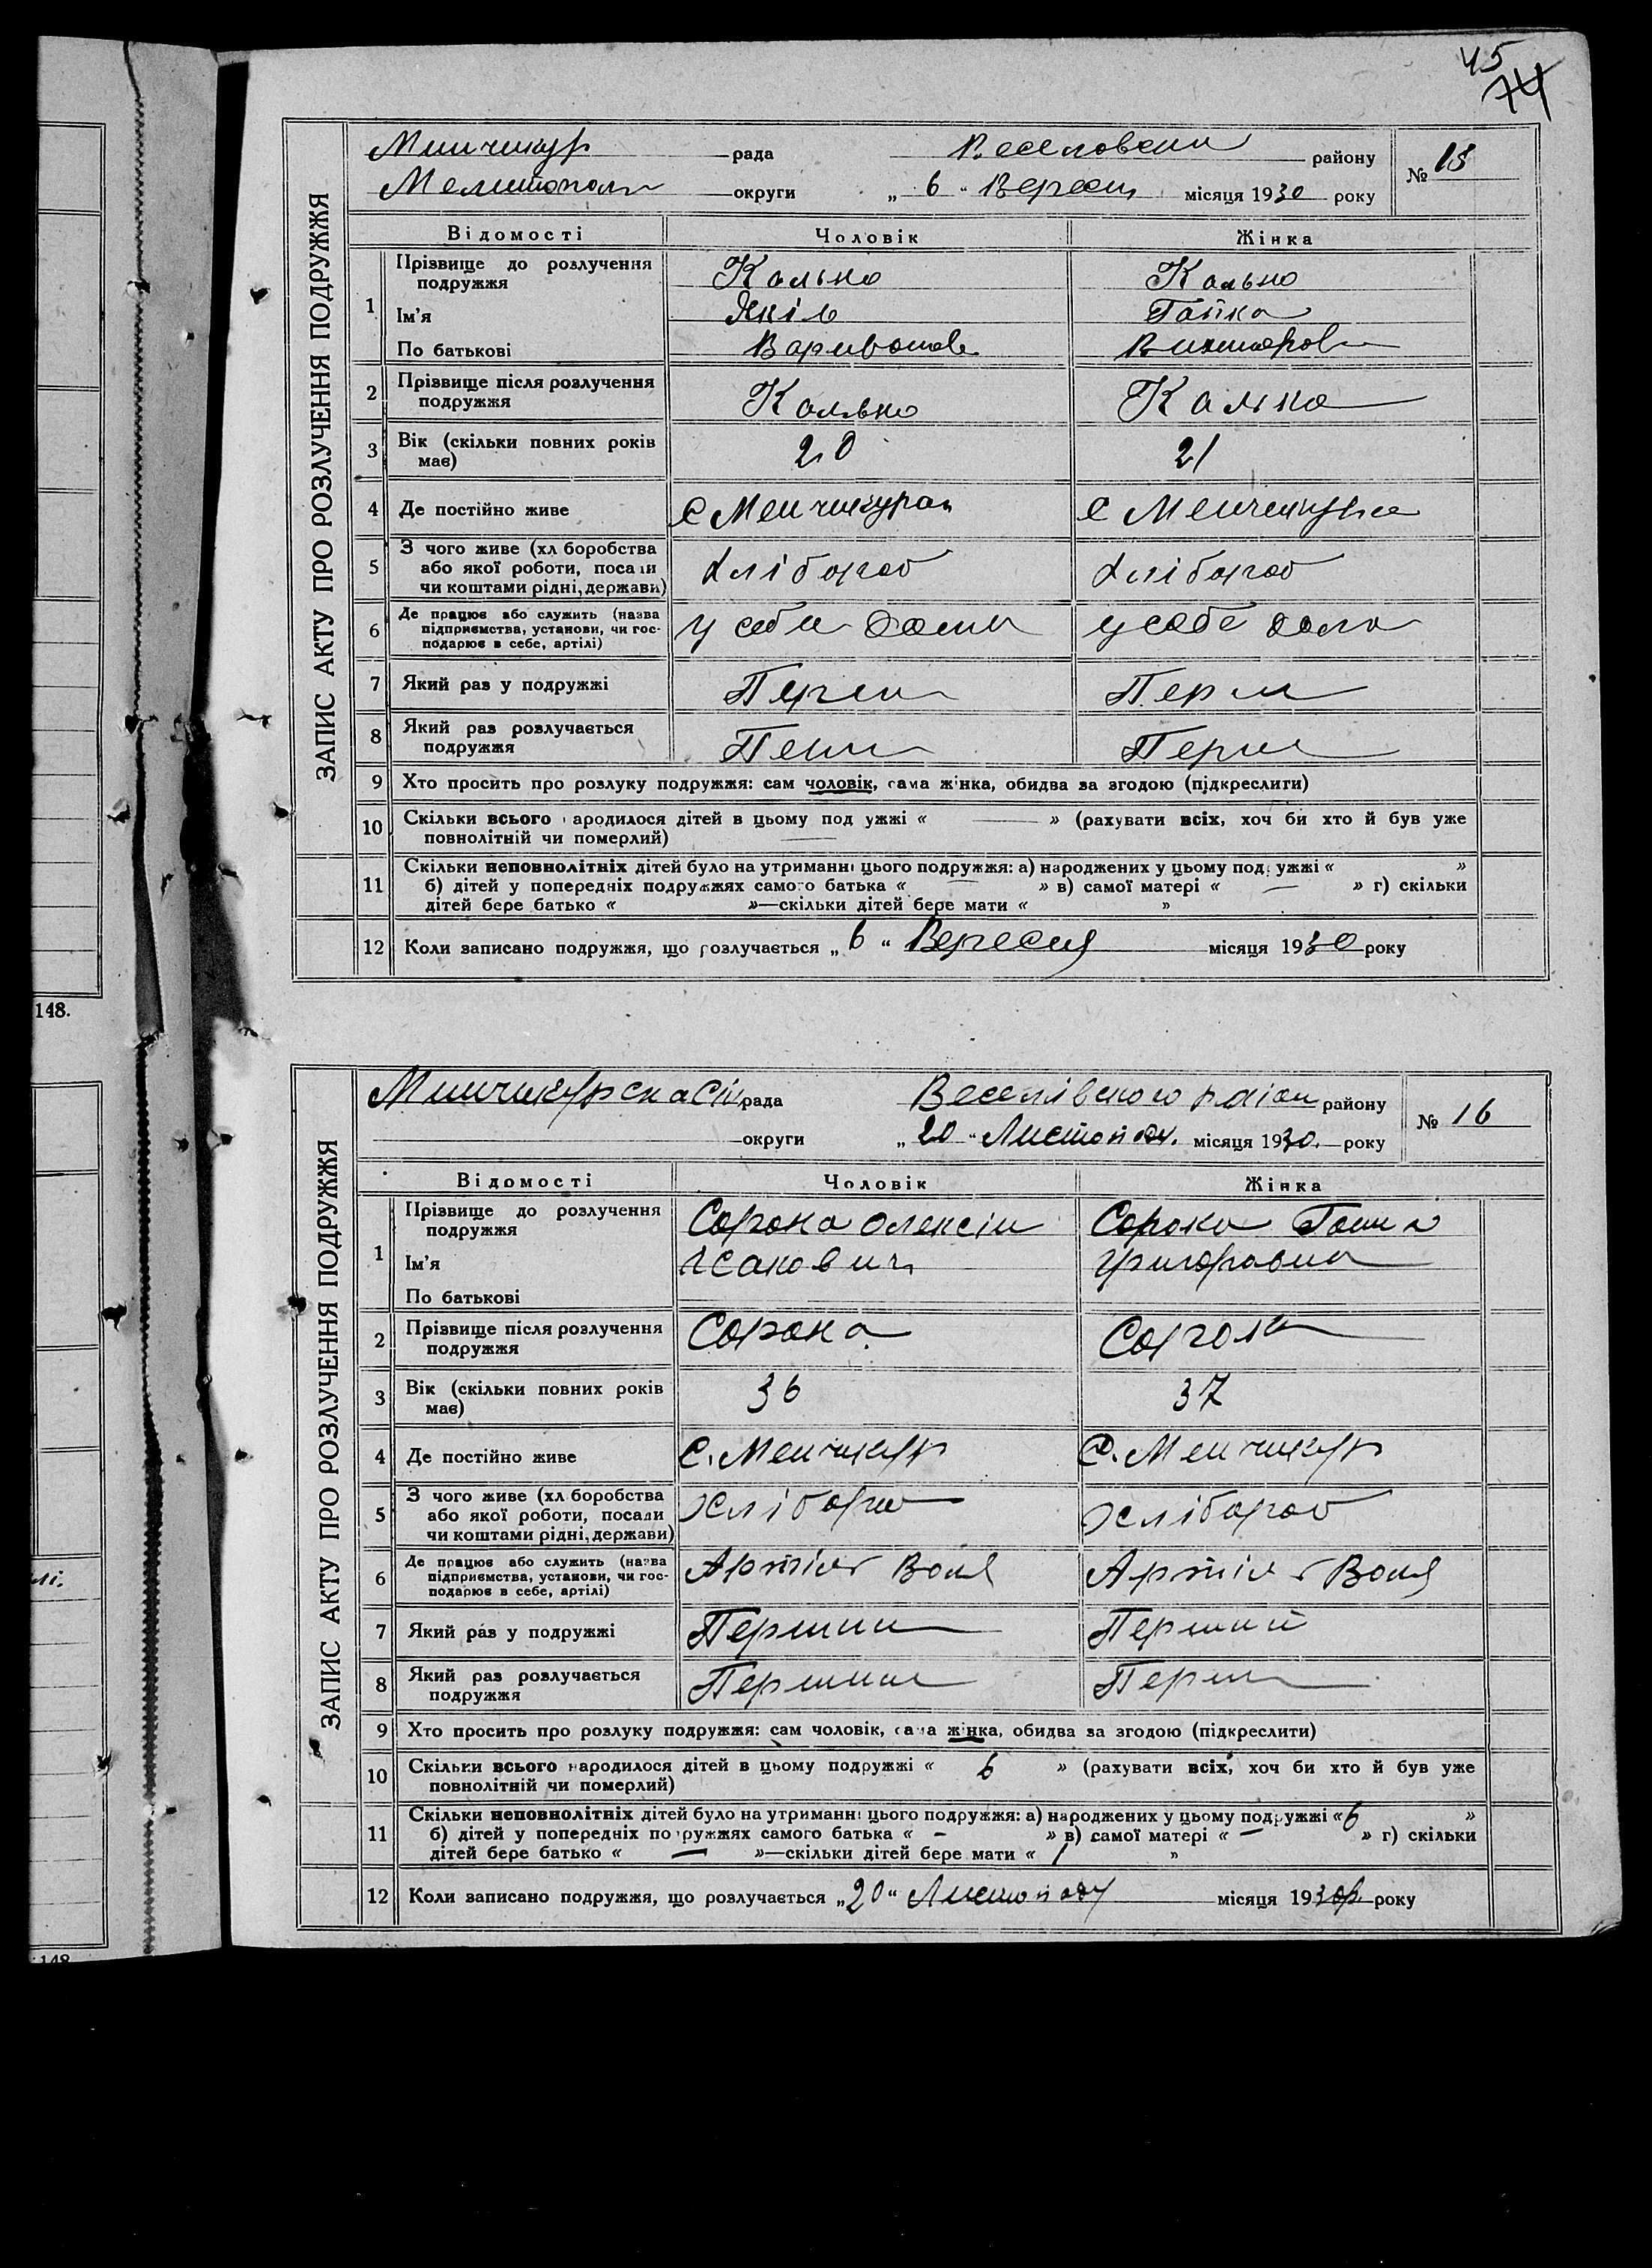 45
74
ЗАПИС АКТУ ПРО РОЗЛУЧЕННЯ ПОДРУЖЖЯ
Минчикур рада Веселовски району № 15
Мелитопол округи „ 6 “ Вересн місяця 1930 року
Відомості Чоловік Жінка
1 Прізвище до розлучення подружжя Калько Калько
Ім’я Яків Ганка
По батькові Вікторов
2 Прізвище після розлучення подружжя Калько Калько
3 Вік (скільки повних років має) 20 21
4 Де постійно живе с Менчикурах с Менчикура
5 З чого живе (хліборобства або якої роботи, посади чи коштами рідні, держави) Хлібороб Хлібороб
6 Де працює або служить (назва підприємства, установи, чи господарює в себе, артілі) У себе дома у себе дома
7 Який раз у подружжі Перши Перш
8 Який раз розлучається подружжя Перш
9 Хто просить про розлуку подружжя: сам чоловік, сама жінка, обидва за згодою (підкреслити)
10 Скільки всього народилося дітей в цьому подружжі « — » (рахувати всіх, хоч би хто й був уже
повнолітній чи померлий)
11 Скільки неповнолітніх дітей було на утриманні цього подружжя: а) народжених у цьому подружжі « »
б) дітей у попередніх подружжях самого батька « — » в) самої матері « — » г) скільки
дітей бере батько « »—скільки дітей бере мати « »
12 Коли записано подружжя, що розлучається „ 6 “ Вересня місяця 1930 року
148.
ЗАПИС АКТУ ПРО РОЗЛУЧЕННЯ ПОДРУЖЖЯ
Минчикурска Сіл рада Веселівського раіон району № 16
округи „ 20 “ Листопад. місяця 1930. року
Відомості Чоловік Жінка
1 Прізвище до розлучення подружжя Сорока Олексіи Сорока
Ім’я Ісакович Григоровна
По батькові
2 Прізвище після розлучення подружжя Сорока Сорока
3 Вік (скільки повних років має) 36 37
4 Де постійно живе с. Менчикур с. Менчикур
5 З чого живе (хліборобства або якої роботи, посади чи коштами рідні, держави) Хлібороб Хлібороб
6 Де працює або служить (назва підприємства, установи, чи господарює в себе, артілі) Артіль Воля Артіль Воля
7 Який раз у подружжі Першии Перший
8 Який раз розлучається подружжя Першии Перш
9 Хто просить про розлуку подружжя: сам чоловік, сама жінка, обидва за згодою (підкреслити)
10 Скільки всього народилося дітей в цьому подружжі « 6 » (рахувати всіх, хоч би хто й був уже
повнолітній чи померлий)
11 Скільки неповнолітніх дітей було на утриманні цього подружжя: а) народжених у цьому подружжі « 6 »
б) дітей у попередніх подружжях самого батька « – » в) самої матері « – » г) скільки
дітей бере батько « — »—скільки дітей бере мати « »
12 Коли записано подружжя, що розлучається „ 20 “ Листопаду місяця 1930 року
148